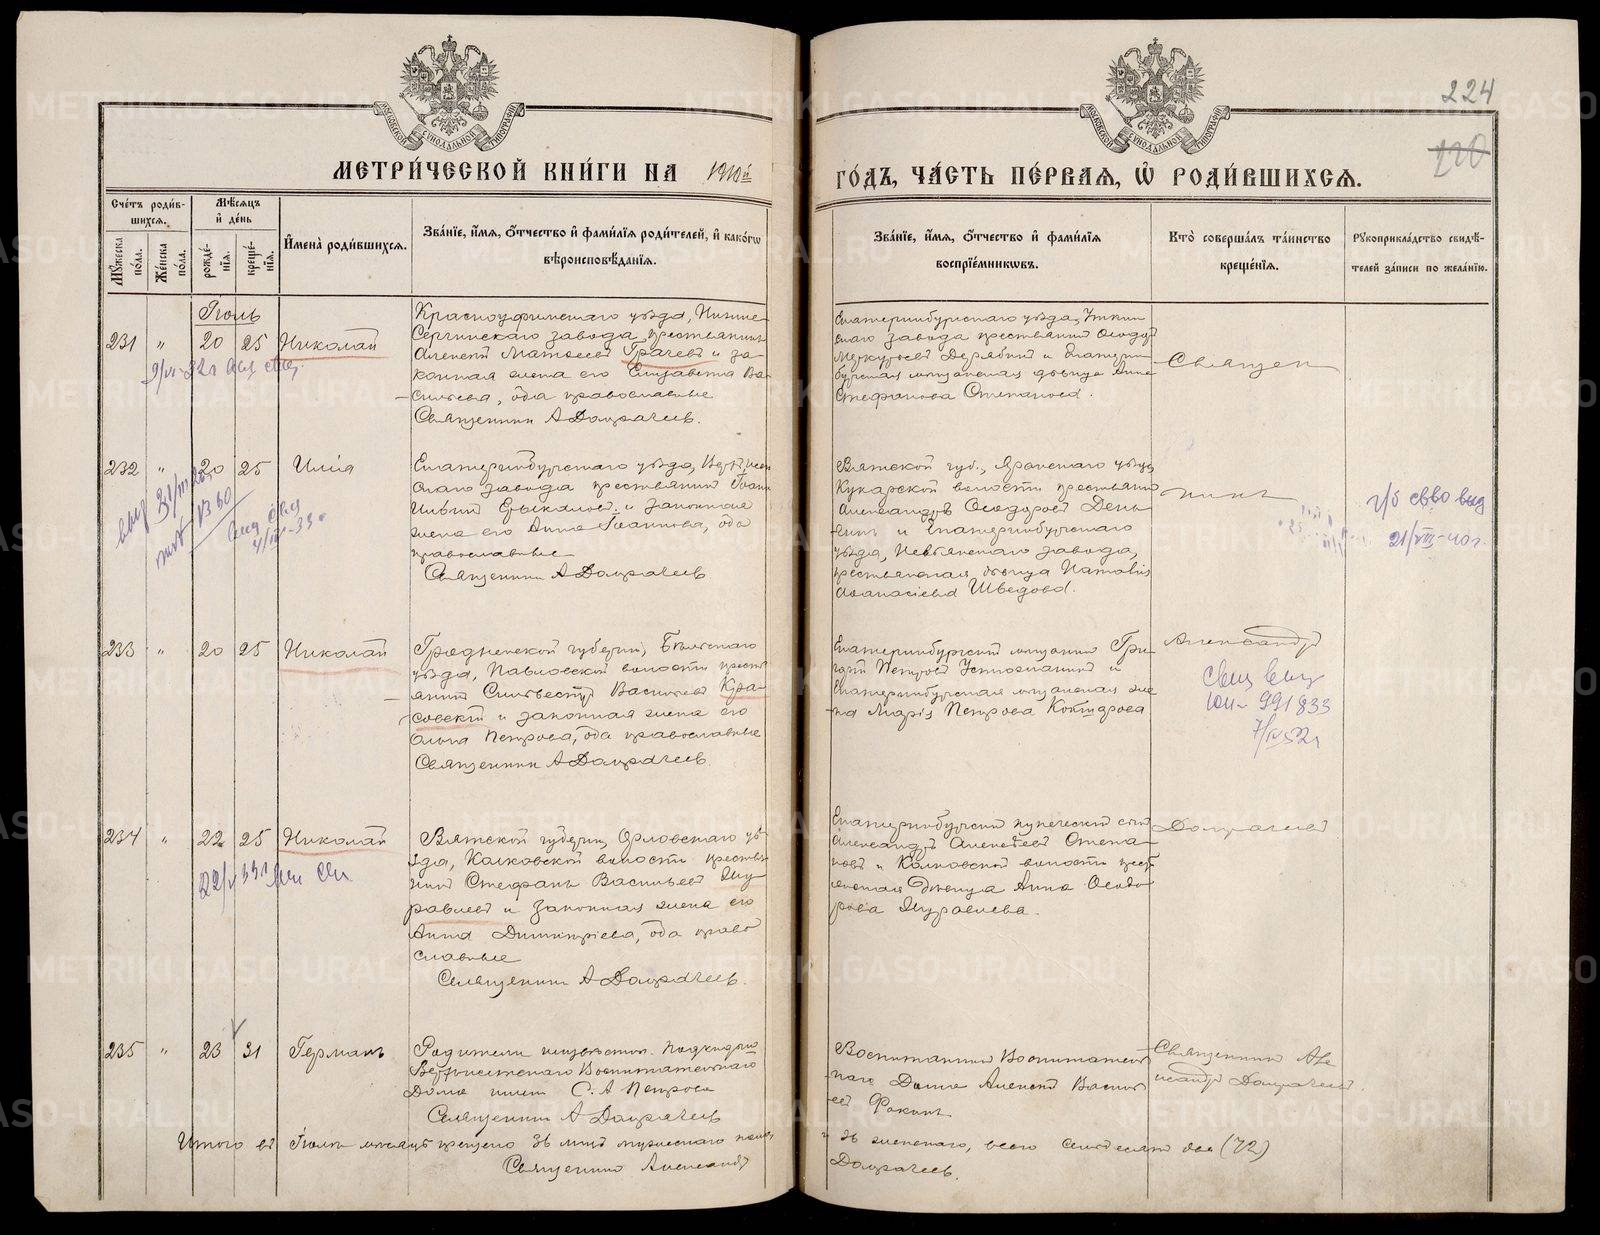 224
220
МОСКОВСКОЙ СѴНОДАЛЬНОЙ ТИПОГРАФІИ
МОСКОВСКОЙ СѴНОДАЛЬНОЙ ТИПОГРАФІИ
МЕТРИ́ЧЕСКОЙ КНИ́ГИ НА 1910й
ГО́ДЪ, ЧА́СТЬ ПЕ́РВАѦ, Ѡ҆ РОДИ́ВШИХСѦ.
Сче́тъ роди́в-
шихсѧ.
Мѣ́сѧцъ
и҆ де́нь
Мꙋ́жеска
по́ла.
Же́нска
по́ла.
рожде́-
нїѧ.
креще́-
нїѧ.
И҆мена̀ роди́вшихсѧ.
Зва́нїе, и҆́мѧ, ѻ҆́тчество и҆ фами́лїѧ роди́телей, и҆ како́гѡ
вѣроисповѣ́данїѧ.
Зва́нїе, и҆́мѧ, ѻ҆́тчество и҆ фами́лїѧ
воспрїе́мникѡвъ.
Кто̀ соверша́лъ та́инство
креще́нїѧ.
Рꙋкоприкла́дство свидѣ́-
телей за́писи по жела́нїю.
Іюль
231 " 20 25 Николай
Красноуфимскаго уѣзда, Нижне-
Сергинскаго завода, крестьянинъ
Алексѣй Матвеевъ Грачевъ и за-
конная жена его Елизавета Ва-
сильева, оба православные
Священникъ А Домрачеев.
Екатеринбургскаго уѣзда, Уткин
скаго завода крестьянинъ Ѳеодоръ
Меркурьевъ Дерябинъ и Екатерин-
бургская мѣщанская дѣвица Анна
Стефанова Степанова.
Священ
232 " 20 25 Илія
Екатеринбургскаго уѣзда, Верхъ-Исет
скаго завода крестьянинъ Іоаннъ
Ильинъ и законная
жена его Анна Іоаннова, оба
православные
Священникъ А Домрачеев
Вятской губ., Яранскаго уѣзда,
Кукарской волости крестьянинъ
Александръ Ѳеодоровъ День-
гинъ и Екатеринбургскаго
уѣзда, Невьянскаго завода,
крестьянская дѣвица Наталія
Аѳанасіева Шведова.
никъ
г/б св-во выд
21/VIII-40 г.
233 " 20 25 Николай
Гродненской губерніи, Бѣльскаго
уѣзда, Павловской волости кресть
янинъ Сильвестръ Васильевъ Кра-
совскій и законная жена его
Ольга Петрова, оба православные
Священникъ А Домрачеев
Екатеринбургскій мѣщанинъ Гри-
горій Петровъ Устюжанинъ и
Екатеринбургская мѣщанская же
на Марія Петрова Кокшарова
Александръ
свид выд
991833
7/IV 52 г
234 " 22 25 Николай
Вятской губерніи, Орловскаго уѣ-
зда, Колковской волости крестья
нинъ Стефанъ Васильевъ Жу-
равлевъ и законная жена его
Анна Димитріева, оба право
славные
Священникъ А Домрачеев.
Екатеринбургскій купеческій сынъ
Александръ Алексѣевъ Степа-
новъ и Колковской волости крест
янская дѣвица Анна Ѳеодо-
рова Журавлева.
Домрачеевъ
235 " 23 31 Германъ
Родители неизвѣстны. Подкидышъ
Верхъисетскаго Воспитательнаго
Дома имени С. А Петрова
Священникъ А Домрачеев
Воспитанникъ Воспитатель
наго Дома Алексѣй Василь
евъ Фокинъ
Священникъ Але
ксандръ Домрачеевъ.
Итого въ Іюлѣ мѣсяцѣ крещено 36 лицъ мужескаго пола
и 36 женскаго, всего семьдесятъ два (72)
Священникъ Александръ
Домрачеев.
METRIKI.GASO-URAL.RU